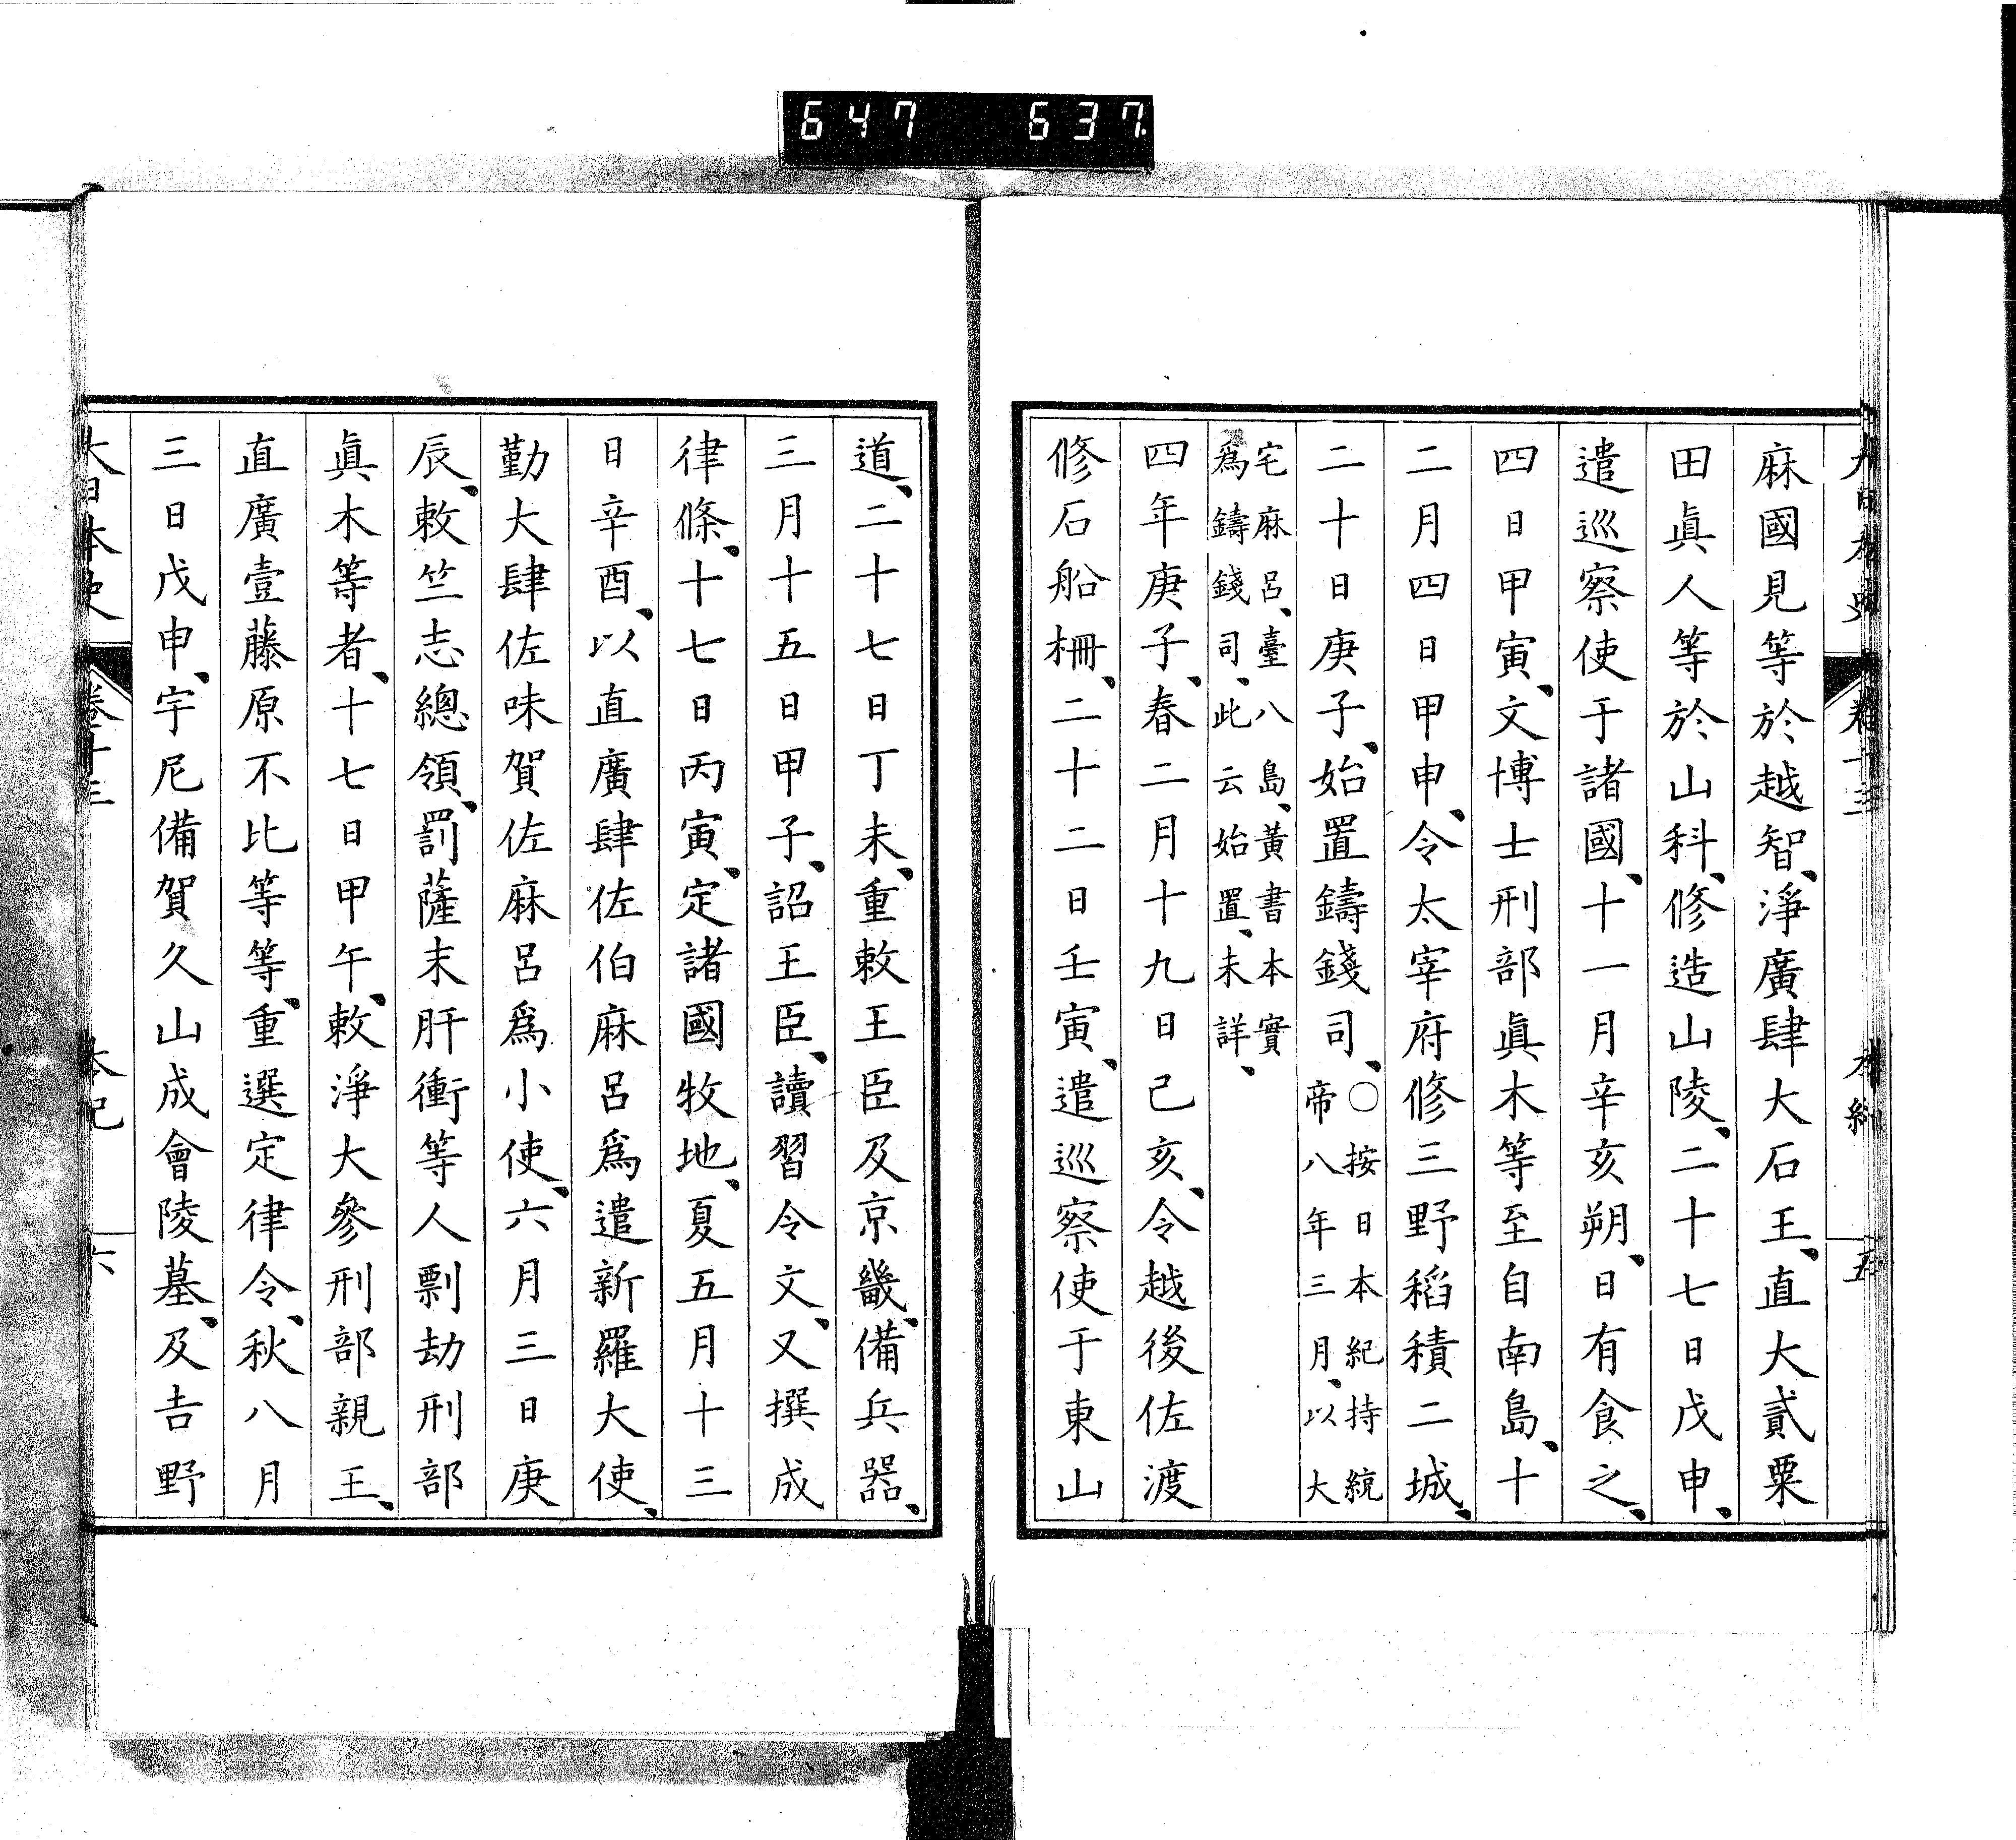 647 637
大日本史 卷十三 本紀 五
麻國見等於越智、淨廣肆大石王、直大貳粟
田眞人等於山科、修造山陵、二十七日戊申、
遣巡察使于諸國、十一月辛亥朔、日有食之、
四日甲寅、文博士刑部眞木等至自南島、十
二月四日甲申、令太宰府修三野稻積二城、
二十日庚子、始置鑄錢司、○按日本紀持統帝八年三月、以大
宅麻呂、臺八島、黃書本實爲鑄錢司、此云始置、未詳、
四年庚子、春二月十九日己亥、令越後佐渡
修石船柵、二十二日壬寅、遣巡察使于東山
道、二十七日丁未、重敕王臣及京畿、備兵器、
三月十五日甲子、詔王臣、讀習令文、又撰成
律條、十七日丙寅、定諸國牧地、夏五月十三
日辛酉、以直廣肆佐伯麻呂爲遣新羅大使、
勤大肆佐味賀佐麻呂爲小使、六月三日庚
辰、敕竺志總領、罰薩末肝衝等人剽劫刑部
眞木等者、十七日甲午、敕淨大參刑部親王、
直廣壹藤原不比等等、重選定律令、秋八月
三日戊申、宇尼備賀久山成會陵墓、及吉野
大日本史 卷十三 本紀 六